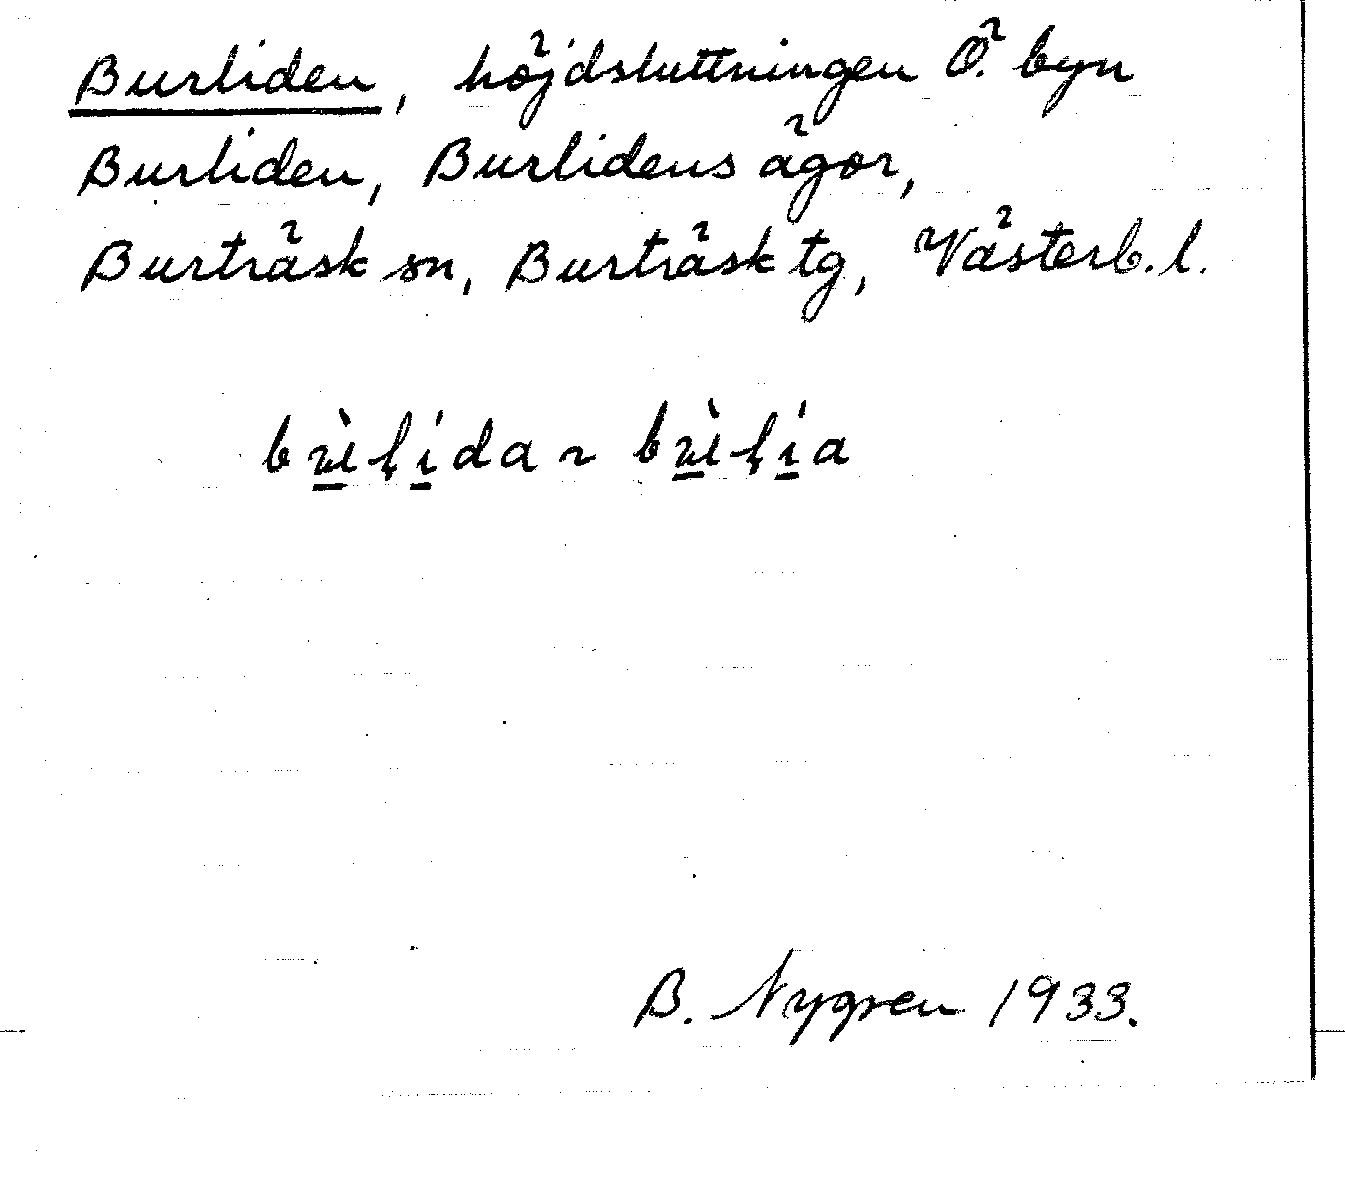 Burliden, höjdsluttningen Ö. byn
Burliden, Burlidens ägor,
Burträsk sn, Burträsk tg, Västerb. l.
B. Nygren 1933.